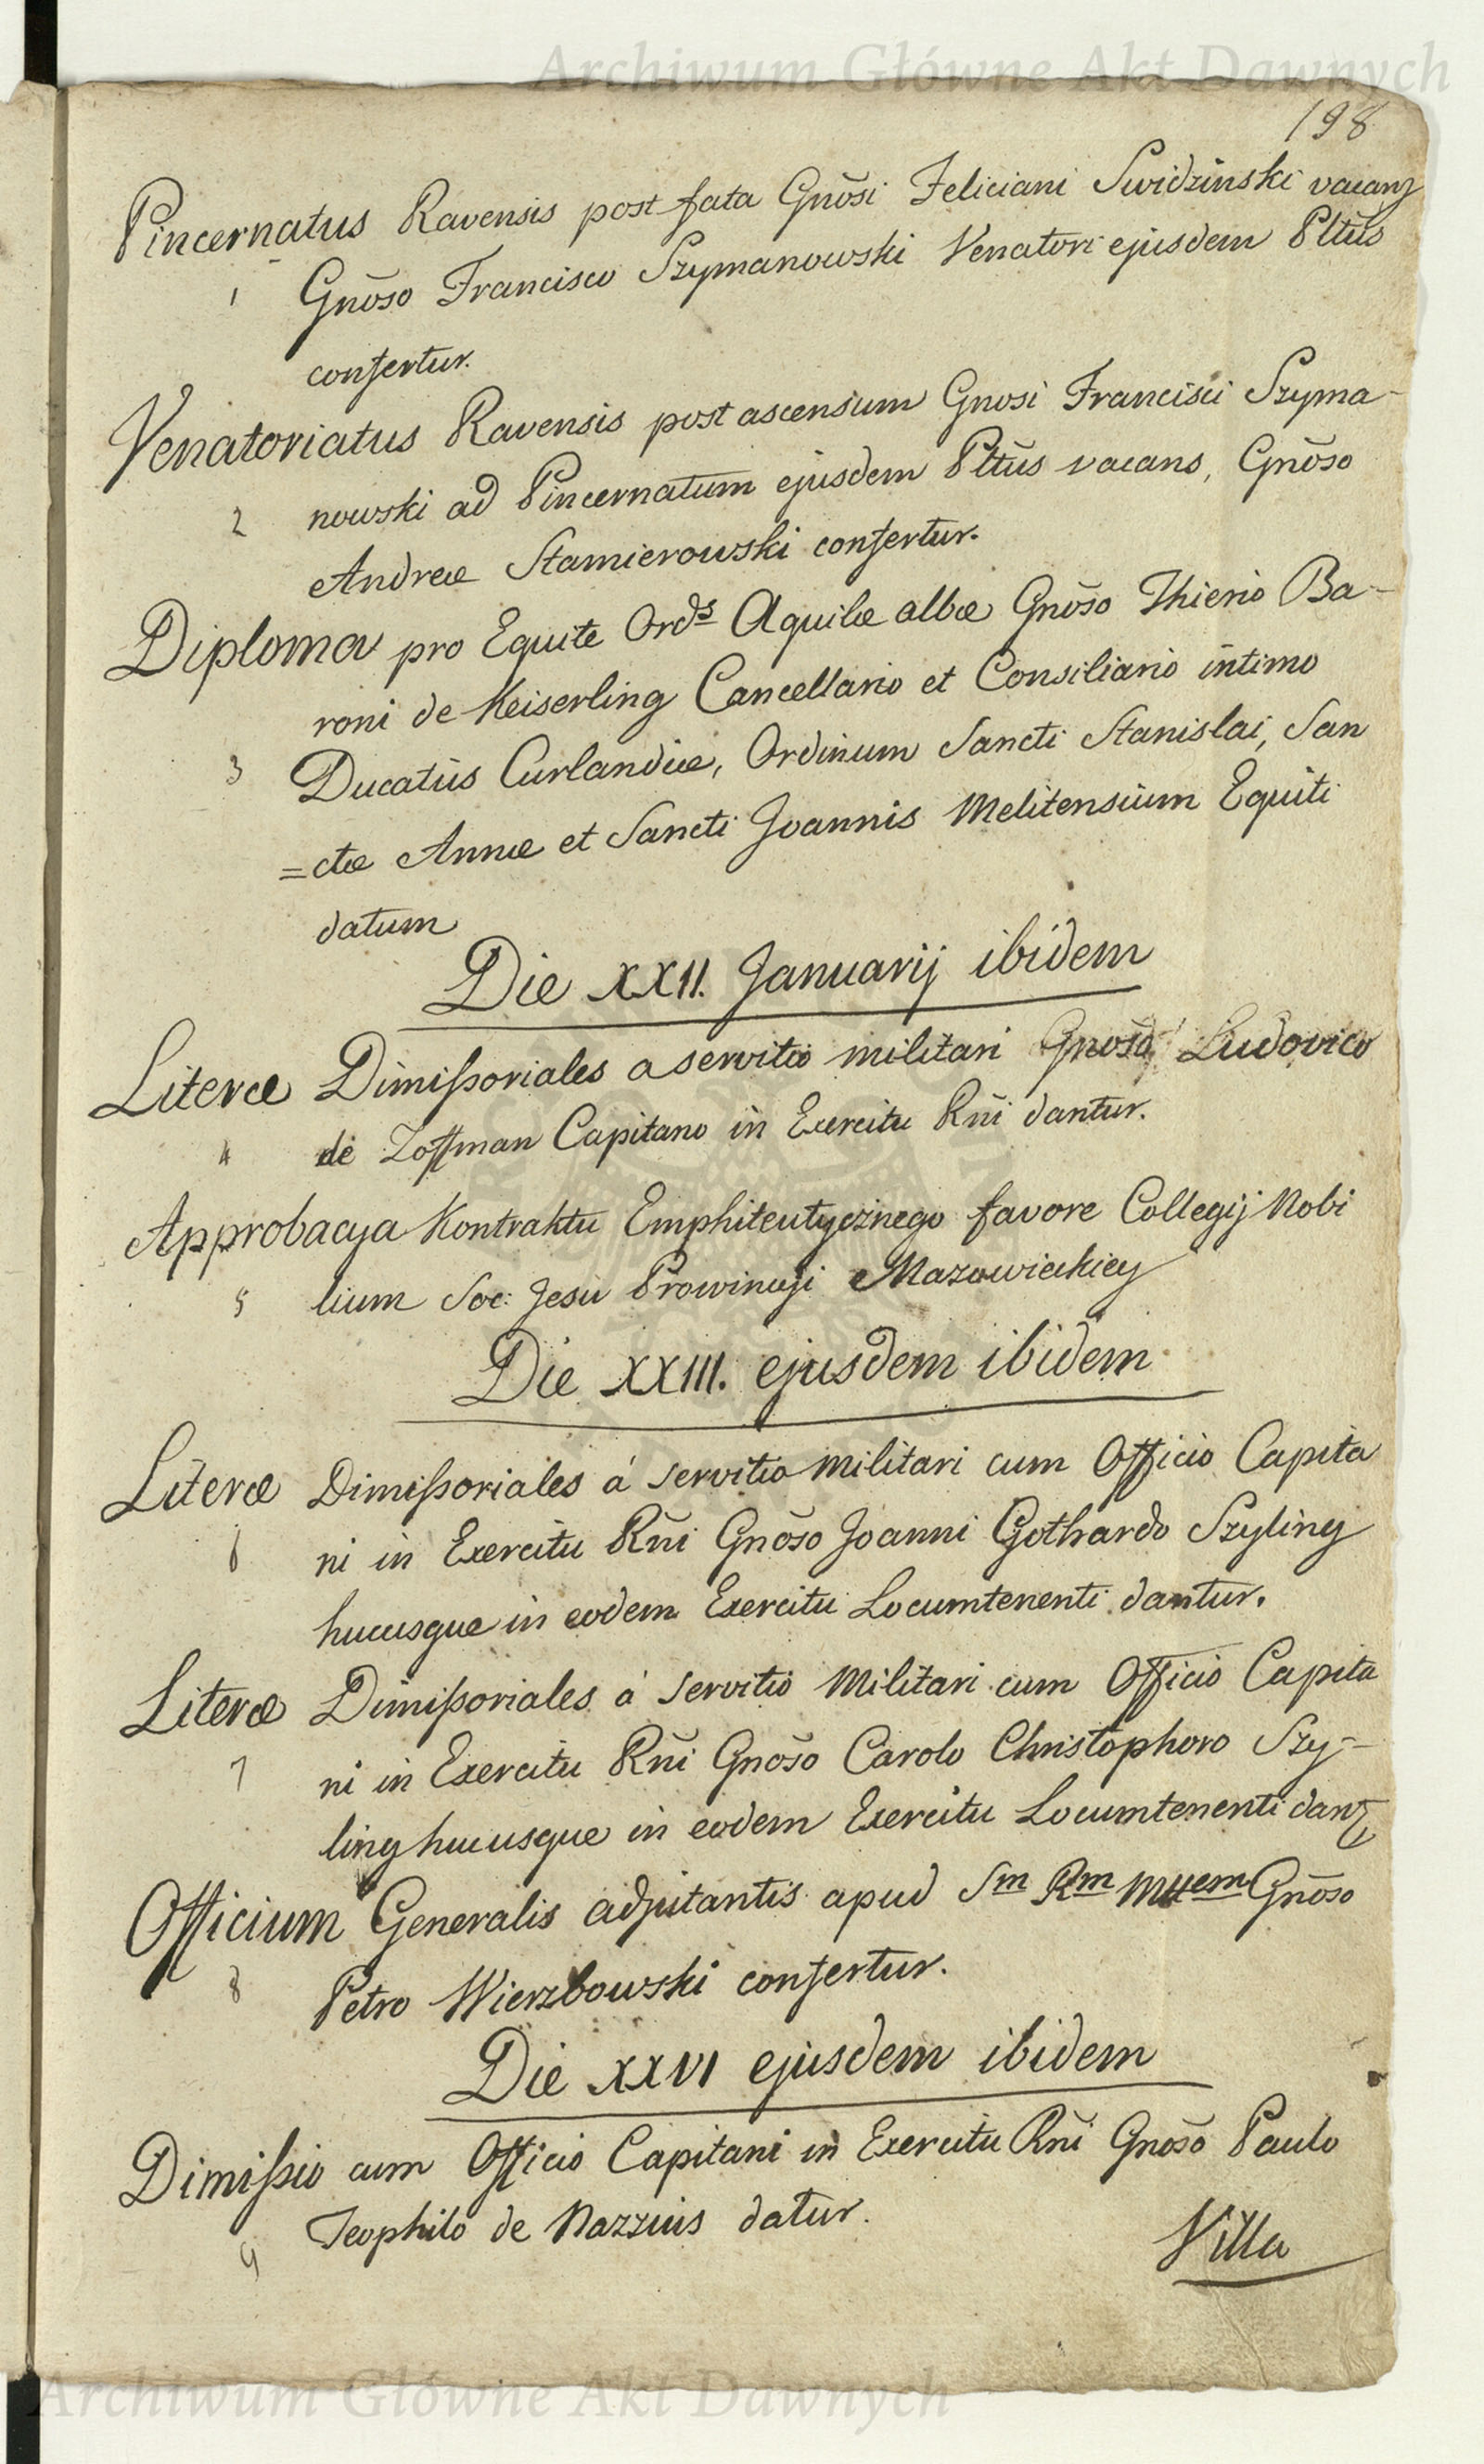 Archiwum Główne Akt Dawnych
198
Pincernatus Ravensis post fata Gnōsi Feliciani Swidzinski vacans
1 Gnōso Francisco Szymanowski Venatori ejusdem Pltūs
confertur.
Venatoriatus Ravensis post ascensum Gnosi Francisci Szyma-
2 nowski ad Pincernatum ejusdem Pltūs vacans, Gnōso
Andreæ Stamierowski confertur.
Diploma pro Equite Ords Aquilæ albæ Gnōso Thierio Ba-
roni de Keiserling Cancellario et Consiliario intimo
3 Ducatûs Curlandiæ, Ordinum Sancti Stanislai, San
=ctæ Annæ et Sancti Joannis Melitensium Equiti
datum
Die XXII. Januarij ibidem
Literæ Dimissoriales a servitio militari Gnōso Ludovico
4 de Zoffman Capitano in Exercitu Rñi dantur.
Approbacya Kontraktu Emphiteutycznego favore Collegij Nobi
5 lium Soc: Jesu Prowincyi Mazowieckiey
Die XXIII. ejusdem ibidem
Literæ Dimissoriales á servitio militari cum Officio Capita
6 ni in Exercitu Rñi Gnōso Joanni Gothardo Szyling
hucusque in eodem Exercitu Locumtenenti dantur.
Literæ Dimissoriales á servitio Militari cum Officio Capita
7 ni in Exercitu Rñi Gnōso Carolo Christophoro Szy-
ling hucusque in eodem Exercitu Locumtenenti dant
Officium Generalis adjutantis apud Sm Rm Mttem Gnōso
8 Petro Wierzbowski confertur.
Die XXVI ejusdem ibidem
Dimissio cum Officio Capitani in Exercitu Rñi Gnōso Paulo
9 Teophilo de Nazzius datur.
Villa
Archiwum Główne Akt Dawnych